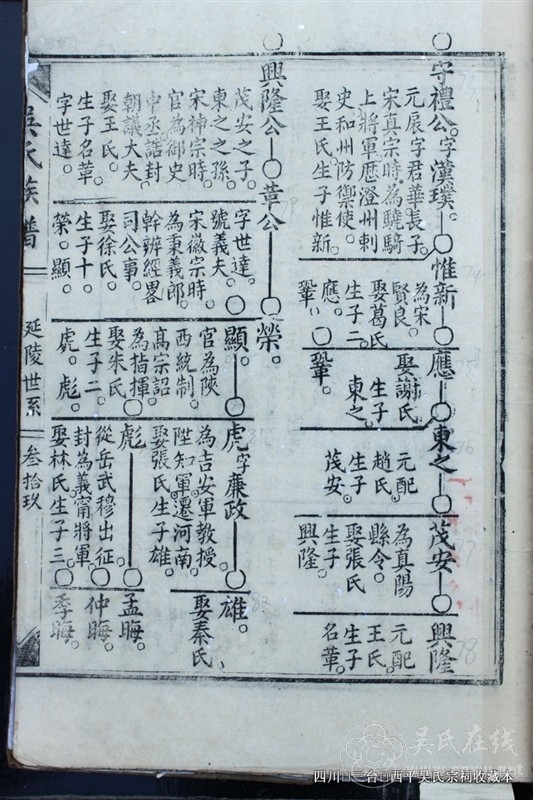 守禮公。字漢璞。
元展字君華長子
宋真宗時。為驍騎
上將軍歷澄州刺
史和州防禦使。
娶王氏。生子惟新。
惟新
為宋
賢良。
娶葛氏
生子二。
應。
鞏。
應
娶謝氏。
生子
東之。
鞏。
東之
元配
趙氏。
生子
茂安。
茂安
為真陽
縣令。
娶張氏
生子
興隆。
興隆
元配
王氏。
生子
名葦。
興隆公
茂安之子。
東之之孫。
宋神宗時。
官為御史
中丞。誥封
朝議大夫。
娶王氏。
生子名葦。
字世達。
葦公
字世達。
號義夫。
宋徽宗時。
為秉義郎。
幹辦經畧
司公事。
娶徐氏。
生子十。
榮。顯。
榮。
顯。
官為陝
西統制。
高宗詔
為指揮。
娶朱氏。
生子二。
虎。彪。
虎字廉政
為吉安軍教授。
陞知軍。還河南。
娶張氏生子雄。
雄。
娶秦氏。
彪
從岳武穆出征。
封為義甯將軍。
娶林氏生子三。
孟晦。
仲晦。
季晦。
吳氏族譜
延陵世系
叁拾玖
吳氏在线
四川□三台□西平吴氏宗祠收藏本